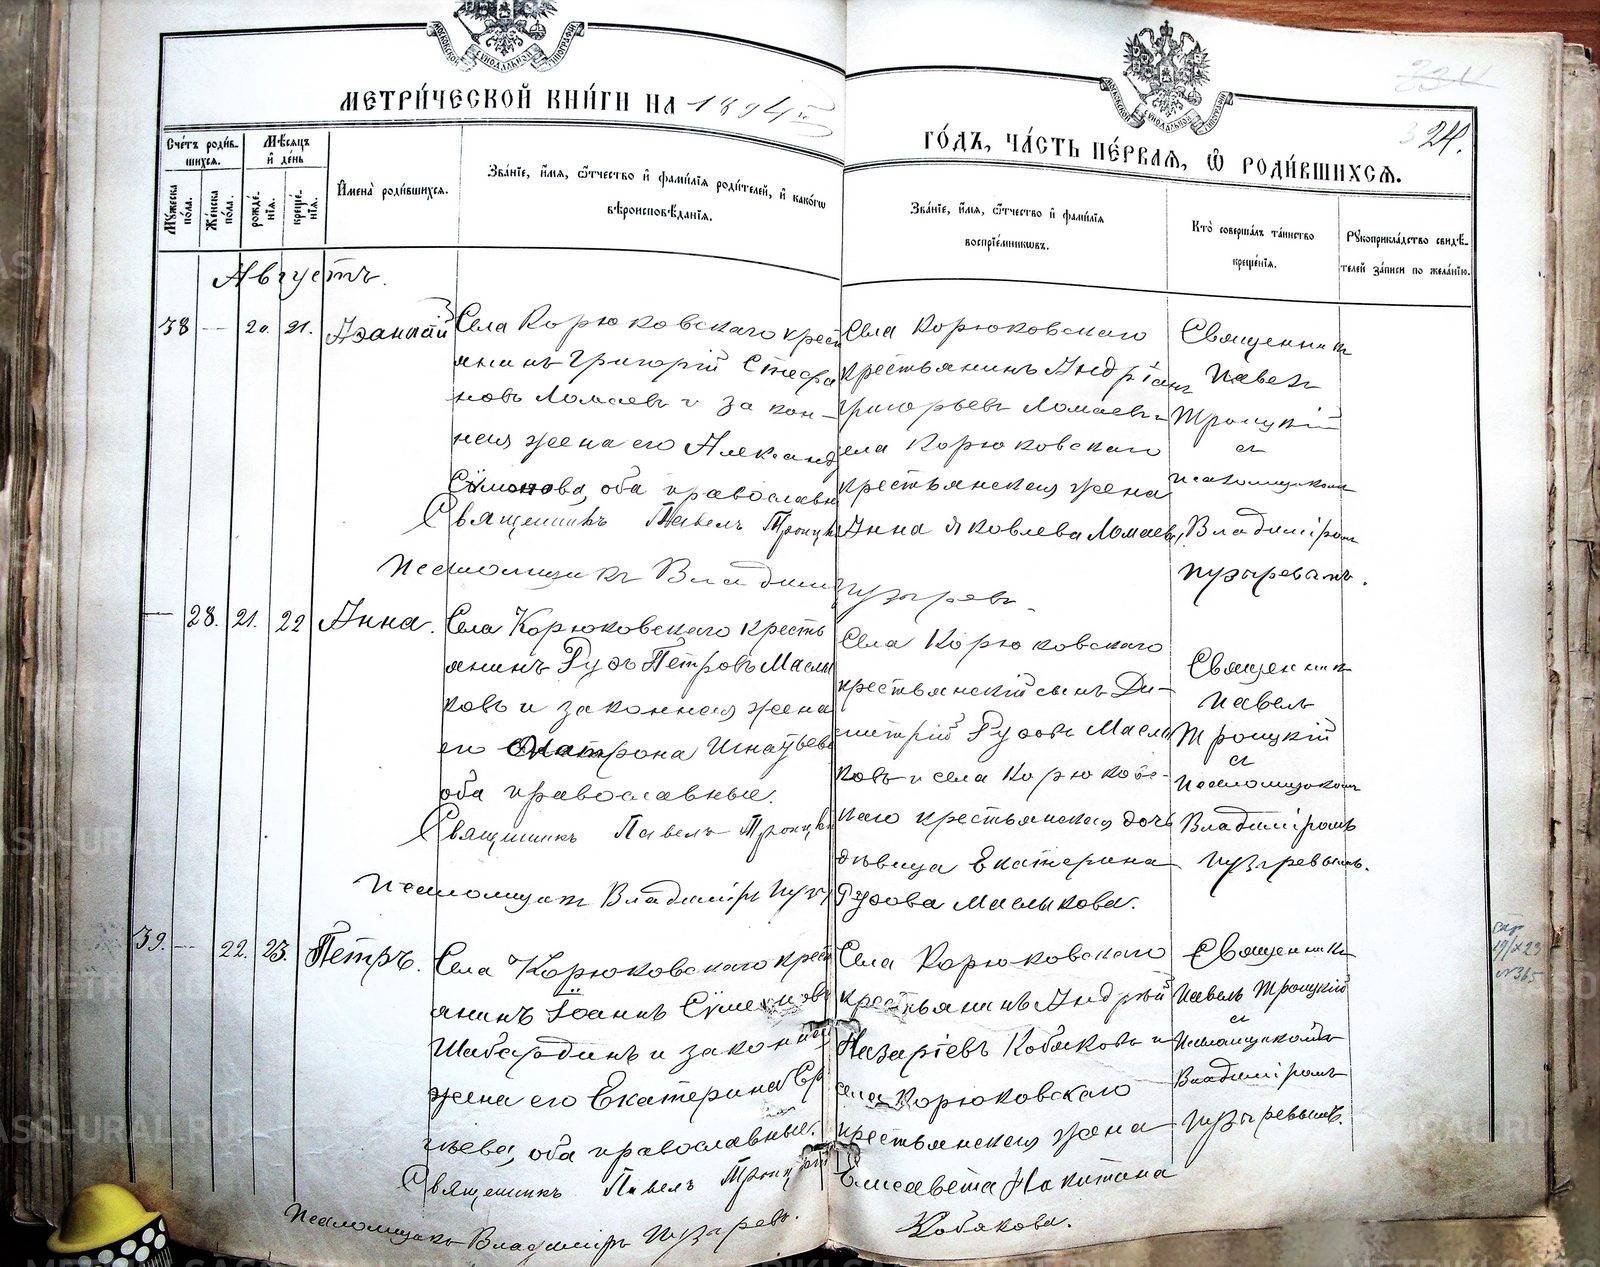 МЕТРИ́ЧЕСКОЙ КНИ́ГИ НА 1894й
ГО́ДЪ, ЧА́СТЬ ПЕ́РВАѦ, Ѽ РОДИ́ВШИХСѦ.
24.
Сче́тъ роди́в-
шихся.
Мѣ́сяцъ
и де́нь
Мꙋ́жеска по́ла.
Же́нска по́ла.
рожде́-
нїя.
креще́-
нїя.
И҆мена̀ роди́вшихся.
Зва́нїе, и҆́мя, ѻ҆́тчество и҆ фами́лїя роди́телей, и҆ како́гѡ
вѣроисповѣ́данїя.
Зва́нїе, и҆́мя, ѻ҆́тчество и҆ фами́лїя
воспрїе́мниковъ.
Кто̀ соверша́лъ та́инство
креще́нїя.
Рꙋкоприкла́дство свидѣ́-
телей за́писи по жела́нїю.
Августъ.
38 — 20. 21.
Села Корюковскаго крест
янинъ Григорій Стефа
новъ Ломаевъ и закон-
ная жена его Александ
Сѷмонова, оба православн
Священникъ Павелъ Троицк
Псаломщикъ Владимі
Села Корюковскаго
крестьянинъ Андріанъ
Григорьевъ Ломаевъ и
села Корюковскаго
крестьянская жена
Анна Яковлева Ломаева
Пузыревъ.
Священник
Павелъ
Троицкій
съ
псаломщикомъ
Владиміромъ
Пузыревымъ.
— 28. 21. 22 Анна.
Села Корюковскаго кресть
янинъ Руфъ Петровъ Маслы
ковъ и законная жена
его Матрона Игнатьева
оба православные.
Священникъ Павелъ Троицкі
Псаломщикъ Владиміръ Пузы
Села Корюковскаго
крестьянскій сынъ Ди-
митрій Руфовъ Маслы
ковъ и села Корюковс-
каго крестьянская дочь
дѣвица Екатерина
Руфова Маслыкова.
Священник
Павелъ
Троицкій
съ
псаломщикомъ
Владиміромъ
Пузыревымъ.
39. — 22. 23. Петръ.
Села Корюковскаго крест
янинъ Іоаннъ Сѷмеоновъ
Шабардинъ и законная
жена его Екатерина
оба православные.
Священникъ Павелъ Троицкій
Псаломщикъ Владиміръ Пузыревъ.
Села Корюковскаго
крестьянинъ Андрей
Назаріевъ Кобяковъ и
села Корюковскаго
крестьянская жена
Елисавета Никитина
Кобякова.
Священникъ
Павелъ Троицкій
съ
псаломщикомъ
Владиміромъ
Пузыревымъ.